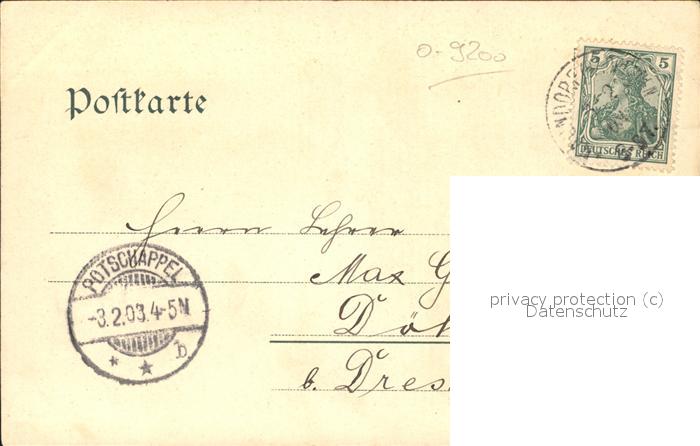 0-9200
5 5
DEUTSCHES REICH
Postkarte
Herrn Lehrer
Max G
Döl
b. Dres
POTSCHAPPEL
-3.2.03.4-5N
* * b
privacy protection (c)
Datenschutz